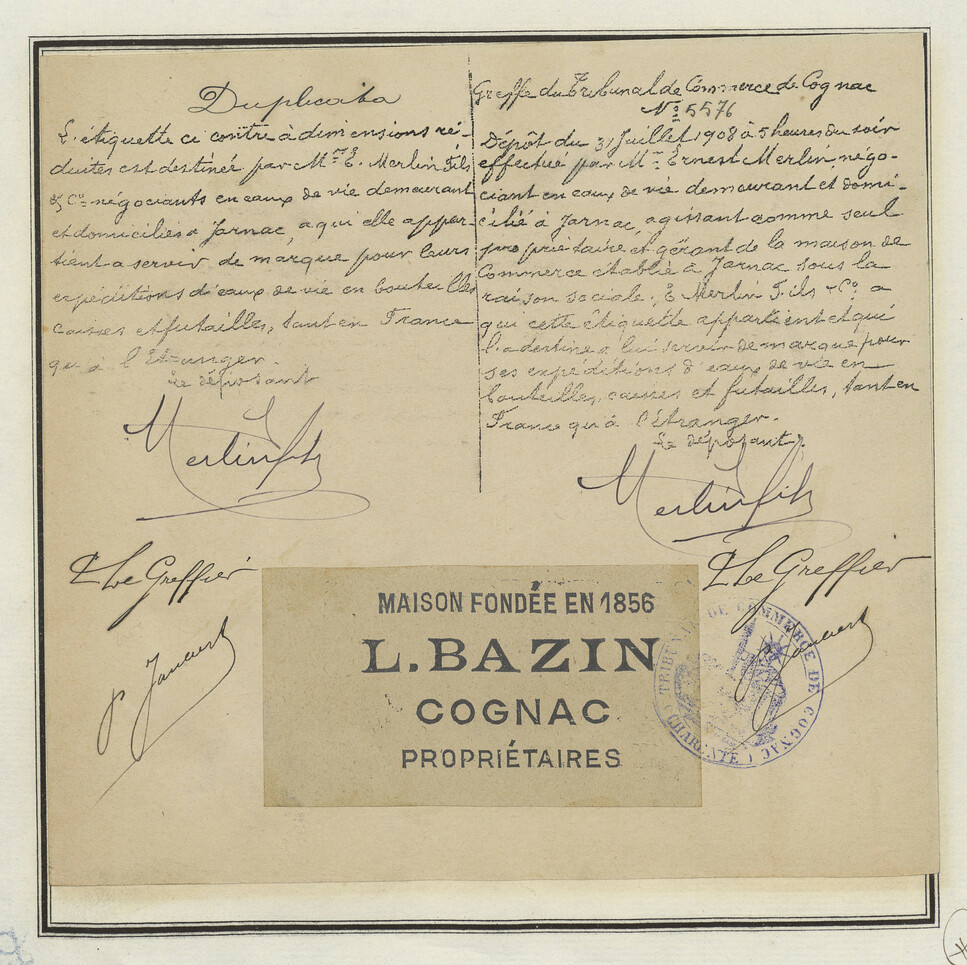 Duplicata
L'étiquette ci contre à dimensions ré-
duites est destiné par Mrs E. Merlin Fils
& Co négociants en eaux de vie demeurant
et domiciliés à Jarnac, a qui elle appar-
tient a servir de marque pour leurs
expéditions d'eaux de vie en bouteilles
caisses et futailles, tant en France
qu'à l'étranger.
Le déposant
Merlin fils
Le Greffier
Greffe du Tribunal de Commerce de Cognac
No 5576
Dépôt du 31 Juillet 1908 à 5 heures du soir
effectué par Mr Ernest Merlin négo-
ciant en eaux de vie demeurant et domi-
cilié à Jarnac, agissant comme seul
propriétaire et gérant de la maison de
Commerce établie à Jarnac sous la
raison sociale, E Merlin Fils & Co a
qui cette étiquette appartient et qui
l'a destine a lui servir de marque pour
ses expéditions d'eaux de vie en
bouteilles, caisses et futailles, tant en
France qu'à l'étranger.
Le déposant,
Merlin fils
Le Greffier
MAISON FONDÉE EN 1856
L. BAZIN
COGNAC
PROPRIÉTAIRES
TRIBUNAL DE COMMERCE DE COGNAC
(CHARENTE)